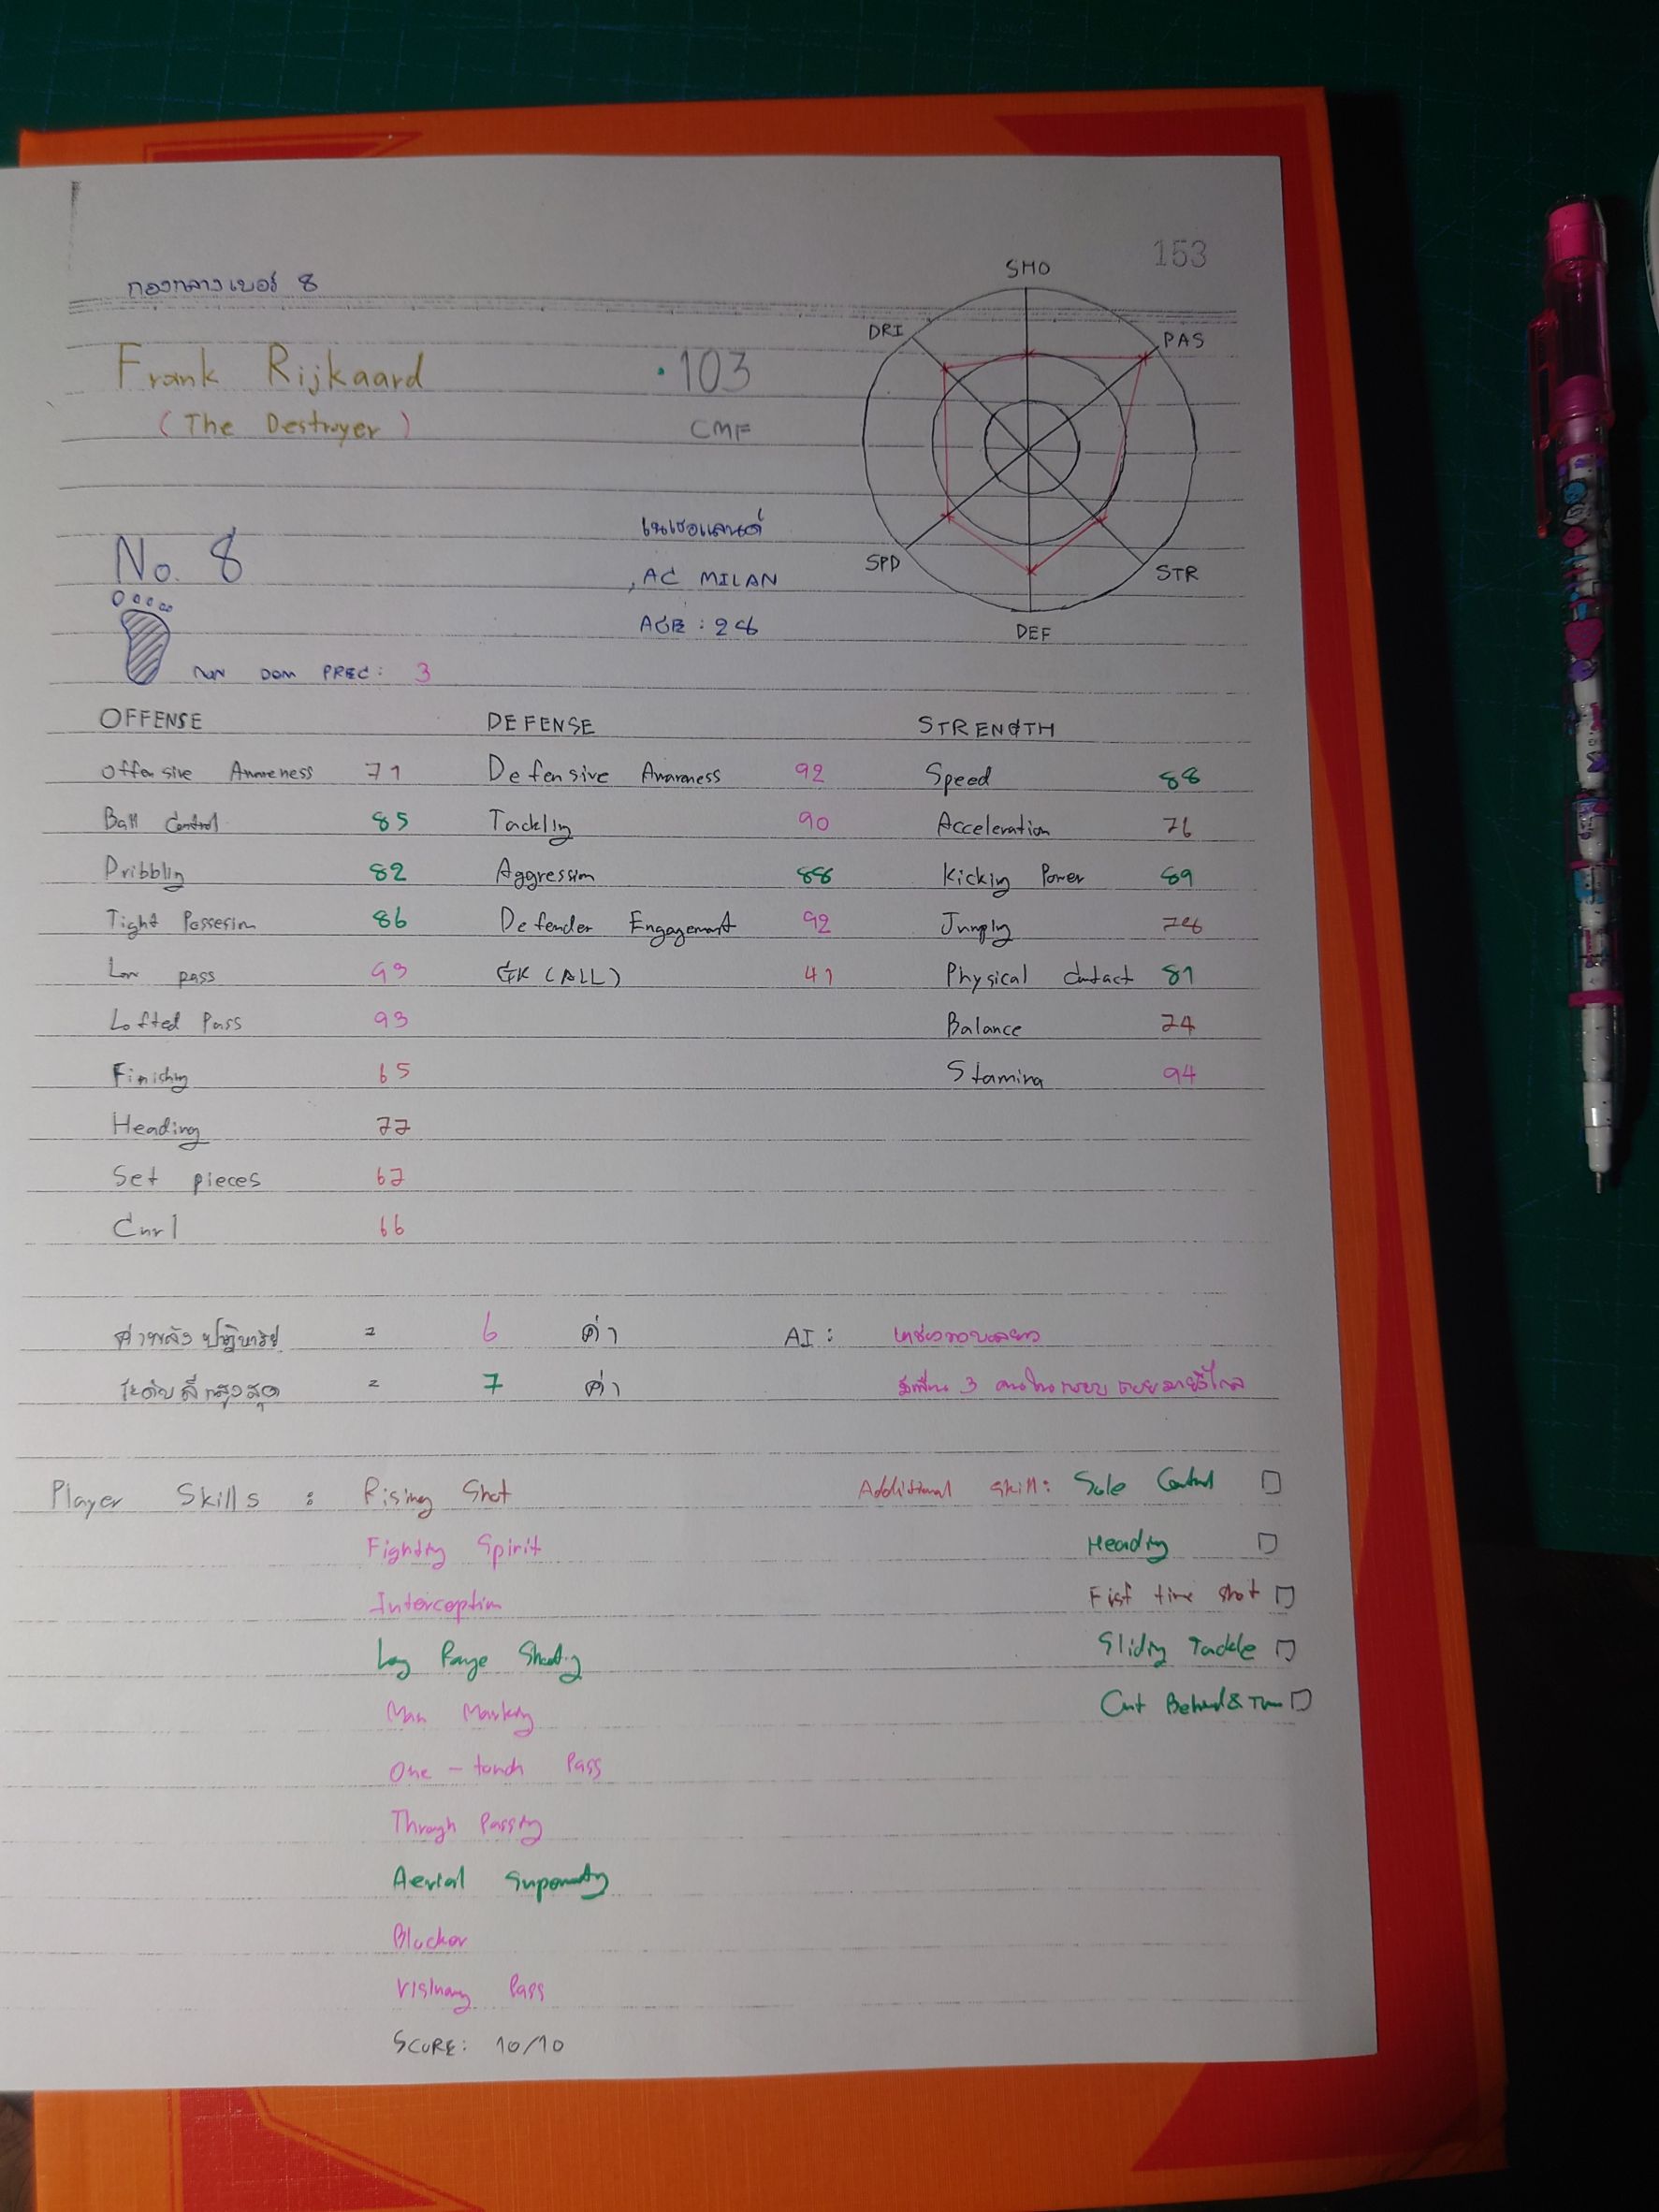 153
กองกลางเบอร์ 8
SHO
DRI
PAS
SPD
STR
DEF
Frank Rijkaard
103
(The Destroyer)
CMF
No. 8
เนเธอแลนด์
AC MILAN
AGE : 28
NON DOM PREC: 3
OFFENSE DEFENSE STRENGTH
Offensive Awareness 71 Defensive Awareness 92 Speed 88
Ball Control 85 Tackling 90 Acceleration 76
Dribbling 82 Aggression 88 Kicking Power 89
Tight Possesion 86 Defender Engagement 92 Jumping 78
Low pass 93 GK (ALL) 41 Physical Contact 81
Lofted Pass 93 Balance 74
Finishing 65 Stamina 94
Heading 77
Set pieces 67
Curl 66
ค่าพลังปาฏิหาริย์ = 6 ค่า AI :
ระดับสีสูงสุด = 7 ค่า
Player Skills : Rising Shot Additional Skill: Sole Control
Fighting Spirit Heading
Interception First time shot
Long Range Shooting Sliding Tackle
Man Marking Cut Behind & Turn
One - touch Pass
Through Passing
Aerial Superiority
Blocker
Visionary Pass
SCORE: 10/10